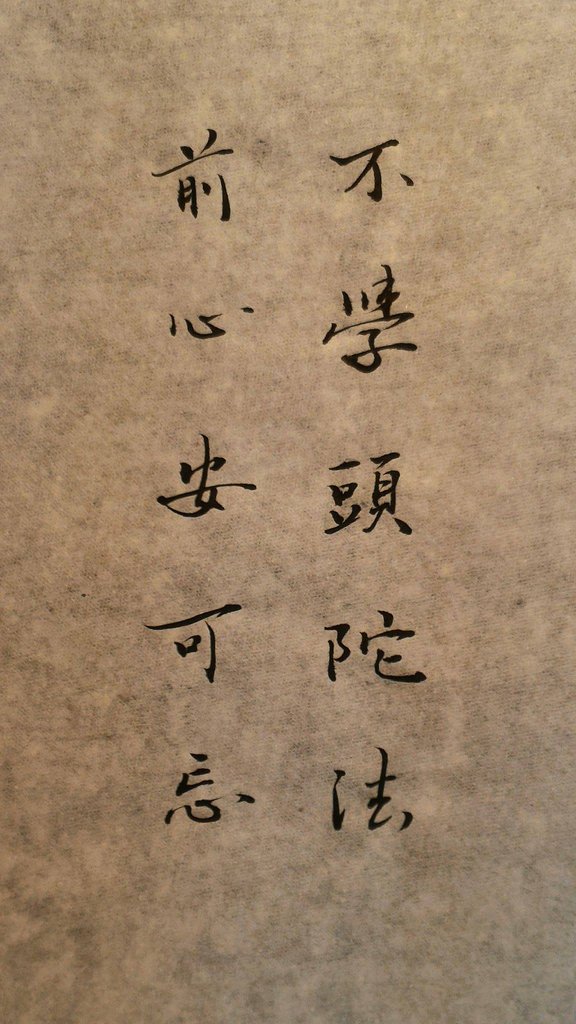 不學頭陀法
前心安可忘